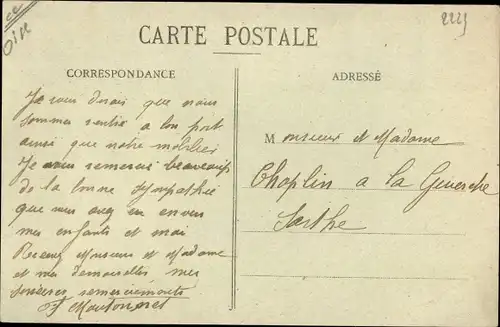 Oise
2225
CARTE POSTALE
CORRESPONDANCE
ADRESSE
Je vous dirais que nous
sommes rentré a bon port
ainsi que notre mobilier
Je vous remercie beaucoup
de la bonne sympathie
que vous avez en envers
mes enfants et moi
Recevez Monsieur et Madame
et mes demoiselles mes
sincères remerciements
Monsieur et Madame
Choplin a la Guierche
Sarthe